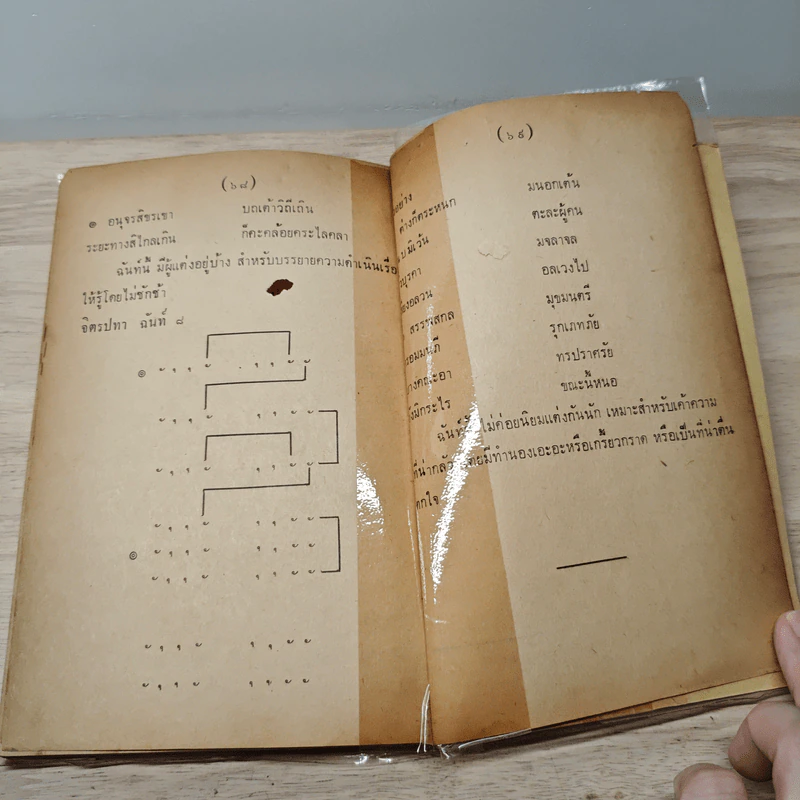 (๖๘)
๑ อนุจรสิขรเขา บถเต้าวิถีเถิน
ระยะทางสิไกลเกิน ก็คะคล้อยคระไลคลา
ฉันท์นี้ มีผู้แต่งอยู่บ้าง สำหรับบรรยายความดำเนินเรื่อ
ให้รู้โดยไม่ชักช้า
จิตรปทา ฉันท์ ๘
๑
๑
(๖๙)
อย่าง มนอกเต้น
ต่างก็ตระหนก ตะละผู้คน
บมิเว้น มจลาจล
อลเวงไป
อลวน มุขมนตรี
สรรพสกล รุกเภทภัย
ทรปราศรัย
ขณะนี้หนอ
มิกระไร
ไม่ค่อยนิยมแต่งกันนัก เหมาะสำหรับเค้าความ
ที่น่ากลัว มีทำนองเอะอะหรือเกรี้ยวกราด หรือเป็นที่น่าตื่น
ตกใจ